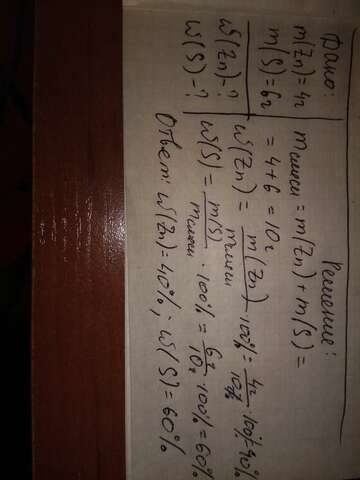 Дано:
m(Zn)=4г
m(S)=6г
w(Zn)-?
w(S)-?
Решение:
mсмеси = m(Zn)+m(S)=
= 4+6 = 10г
w(Zn) = m(Zn)/mсмеси · 100% = 4г/10г · 100% = 40%
w(S) = m(S)/mсмеси · 100% = 6г/10г · 100% = 60%
Ответ: w(Zn)=40%; w(S)=60%